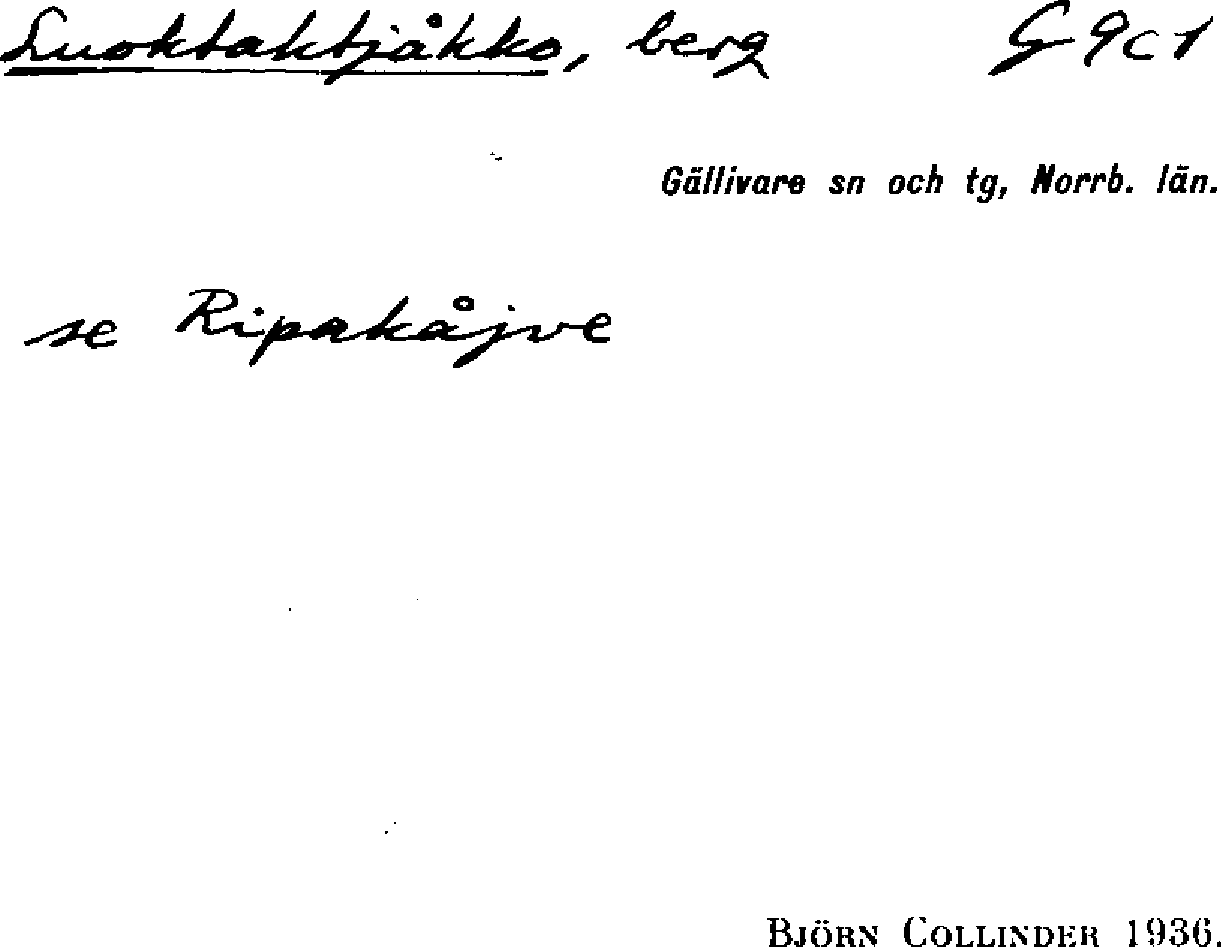 Luoktaktjåkko, berg G 9c1
Gällivare sn och tg, Norrb. län.
se Ripakåjve
BJÖRN COLLINDER 1936.